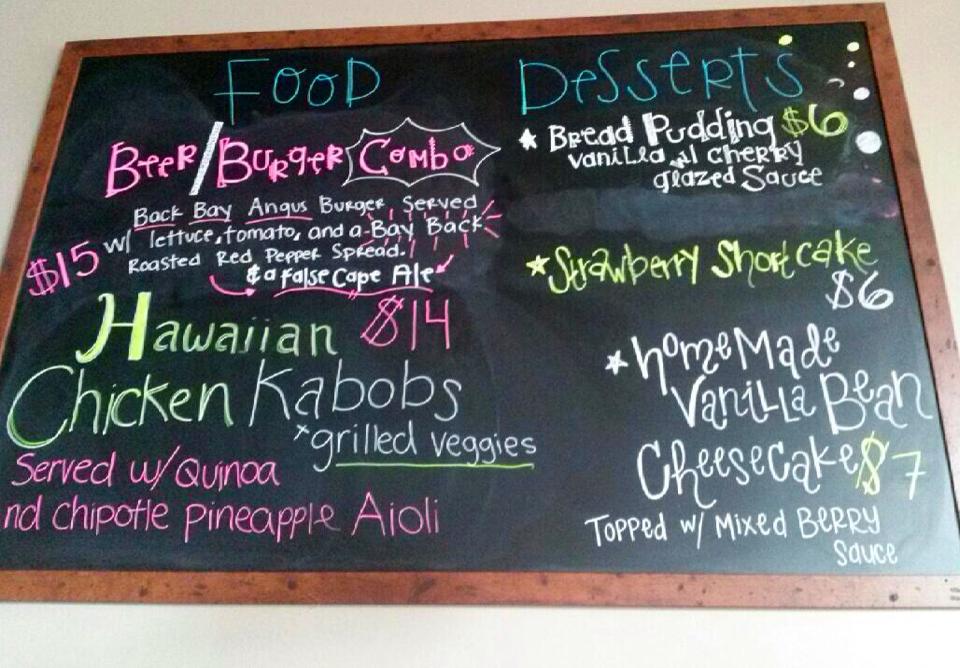 FOOD
BEER/BURGER COMBO
Back Bay Angus Burger Served
w/ lettuce, tomato, and a Bay Back
Roasted Red Pepper Spread.
$15
& a false Cape Ale
Hawaiian $14
Chicken Kabobs
*grilled veggies
Served w/ Quinoa
nd chipotle pineapple Aioli
Desserts
* Bread Pudding $6
vanilla w/ cherry
glazed Sauce
* Strawberry Shortcake
$6
* homeMade
Vanilla Bean
Cheesecake $7
Topped w/ Mixed Berry
Sauce